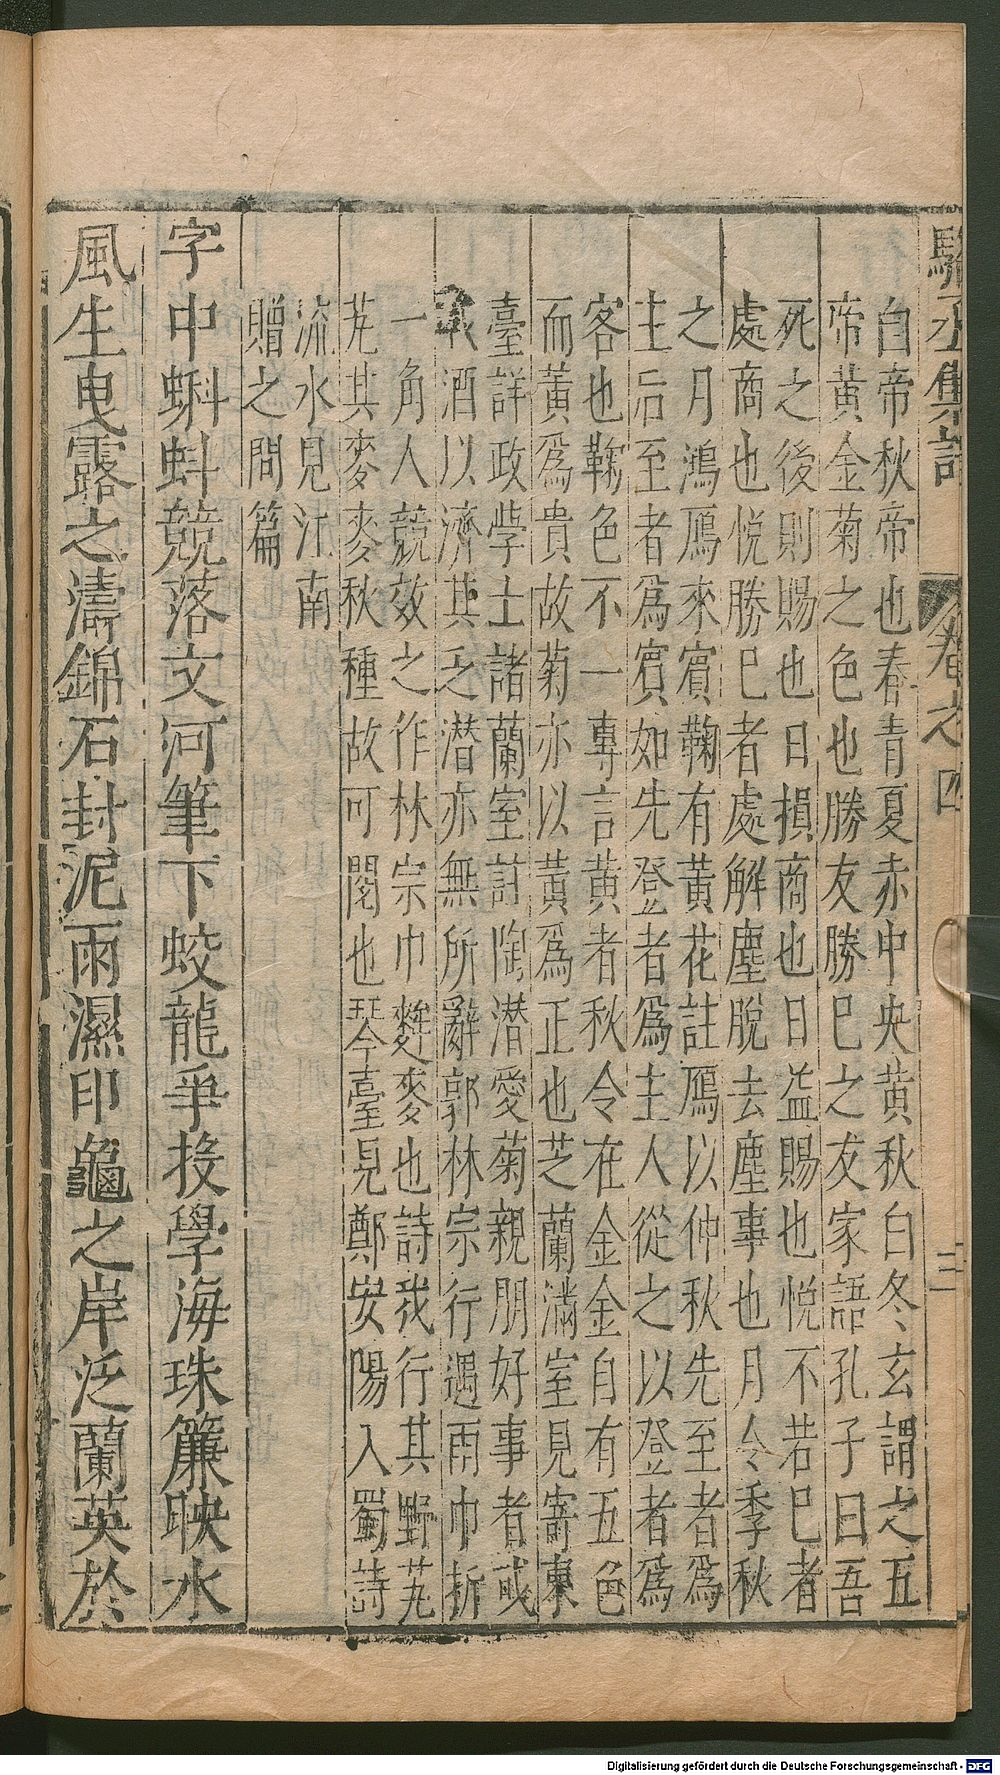 駱丞集註
卷之四
三
白帝秋帝也春青夏赤中央黃秋白冬玄謂之五
帝黃金菊之色也勝友勝巳之友家語孔子曰吾
死之後則賜也日損商也日益賜也悦不若巳者
處商也悦勝巳者處解塵脫去塵事也月令季秋
之月鴻鴈來賓鞠有黃花註鴈以仲秋先至者為
主后至者爲賓如先登者爲主人從之以登者爲
客也鞠色不一專言黃者秋令在金金自有五色
而黃爲貴故菊亦以黃爲正也芝蘭滿室見寄東
臺詳政學士諸蘭室註陶潜愛菊親朋好事者或
載酒以濟其乏潜亦無所辭郭林宗行遇雨巾折
一角人競效之作林宗巾麰麥也詩我行其野芃
芃其麥麥秋種故可閣也琴臺見鄭安陽入蜀詩
流水見江南
贈之問篇
字中蝌蚪競落文河筆下蛟龍爭投學海珠簾映水
風生曳露之濤錦石封泥雨濕印龜之岸泛蘭英於
Digitalisierung gefördert durch die Deutsche Forschungsgemeinschaft - DFG